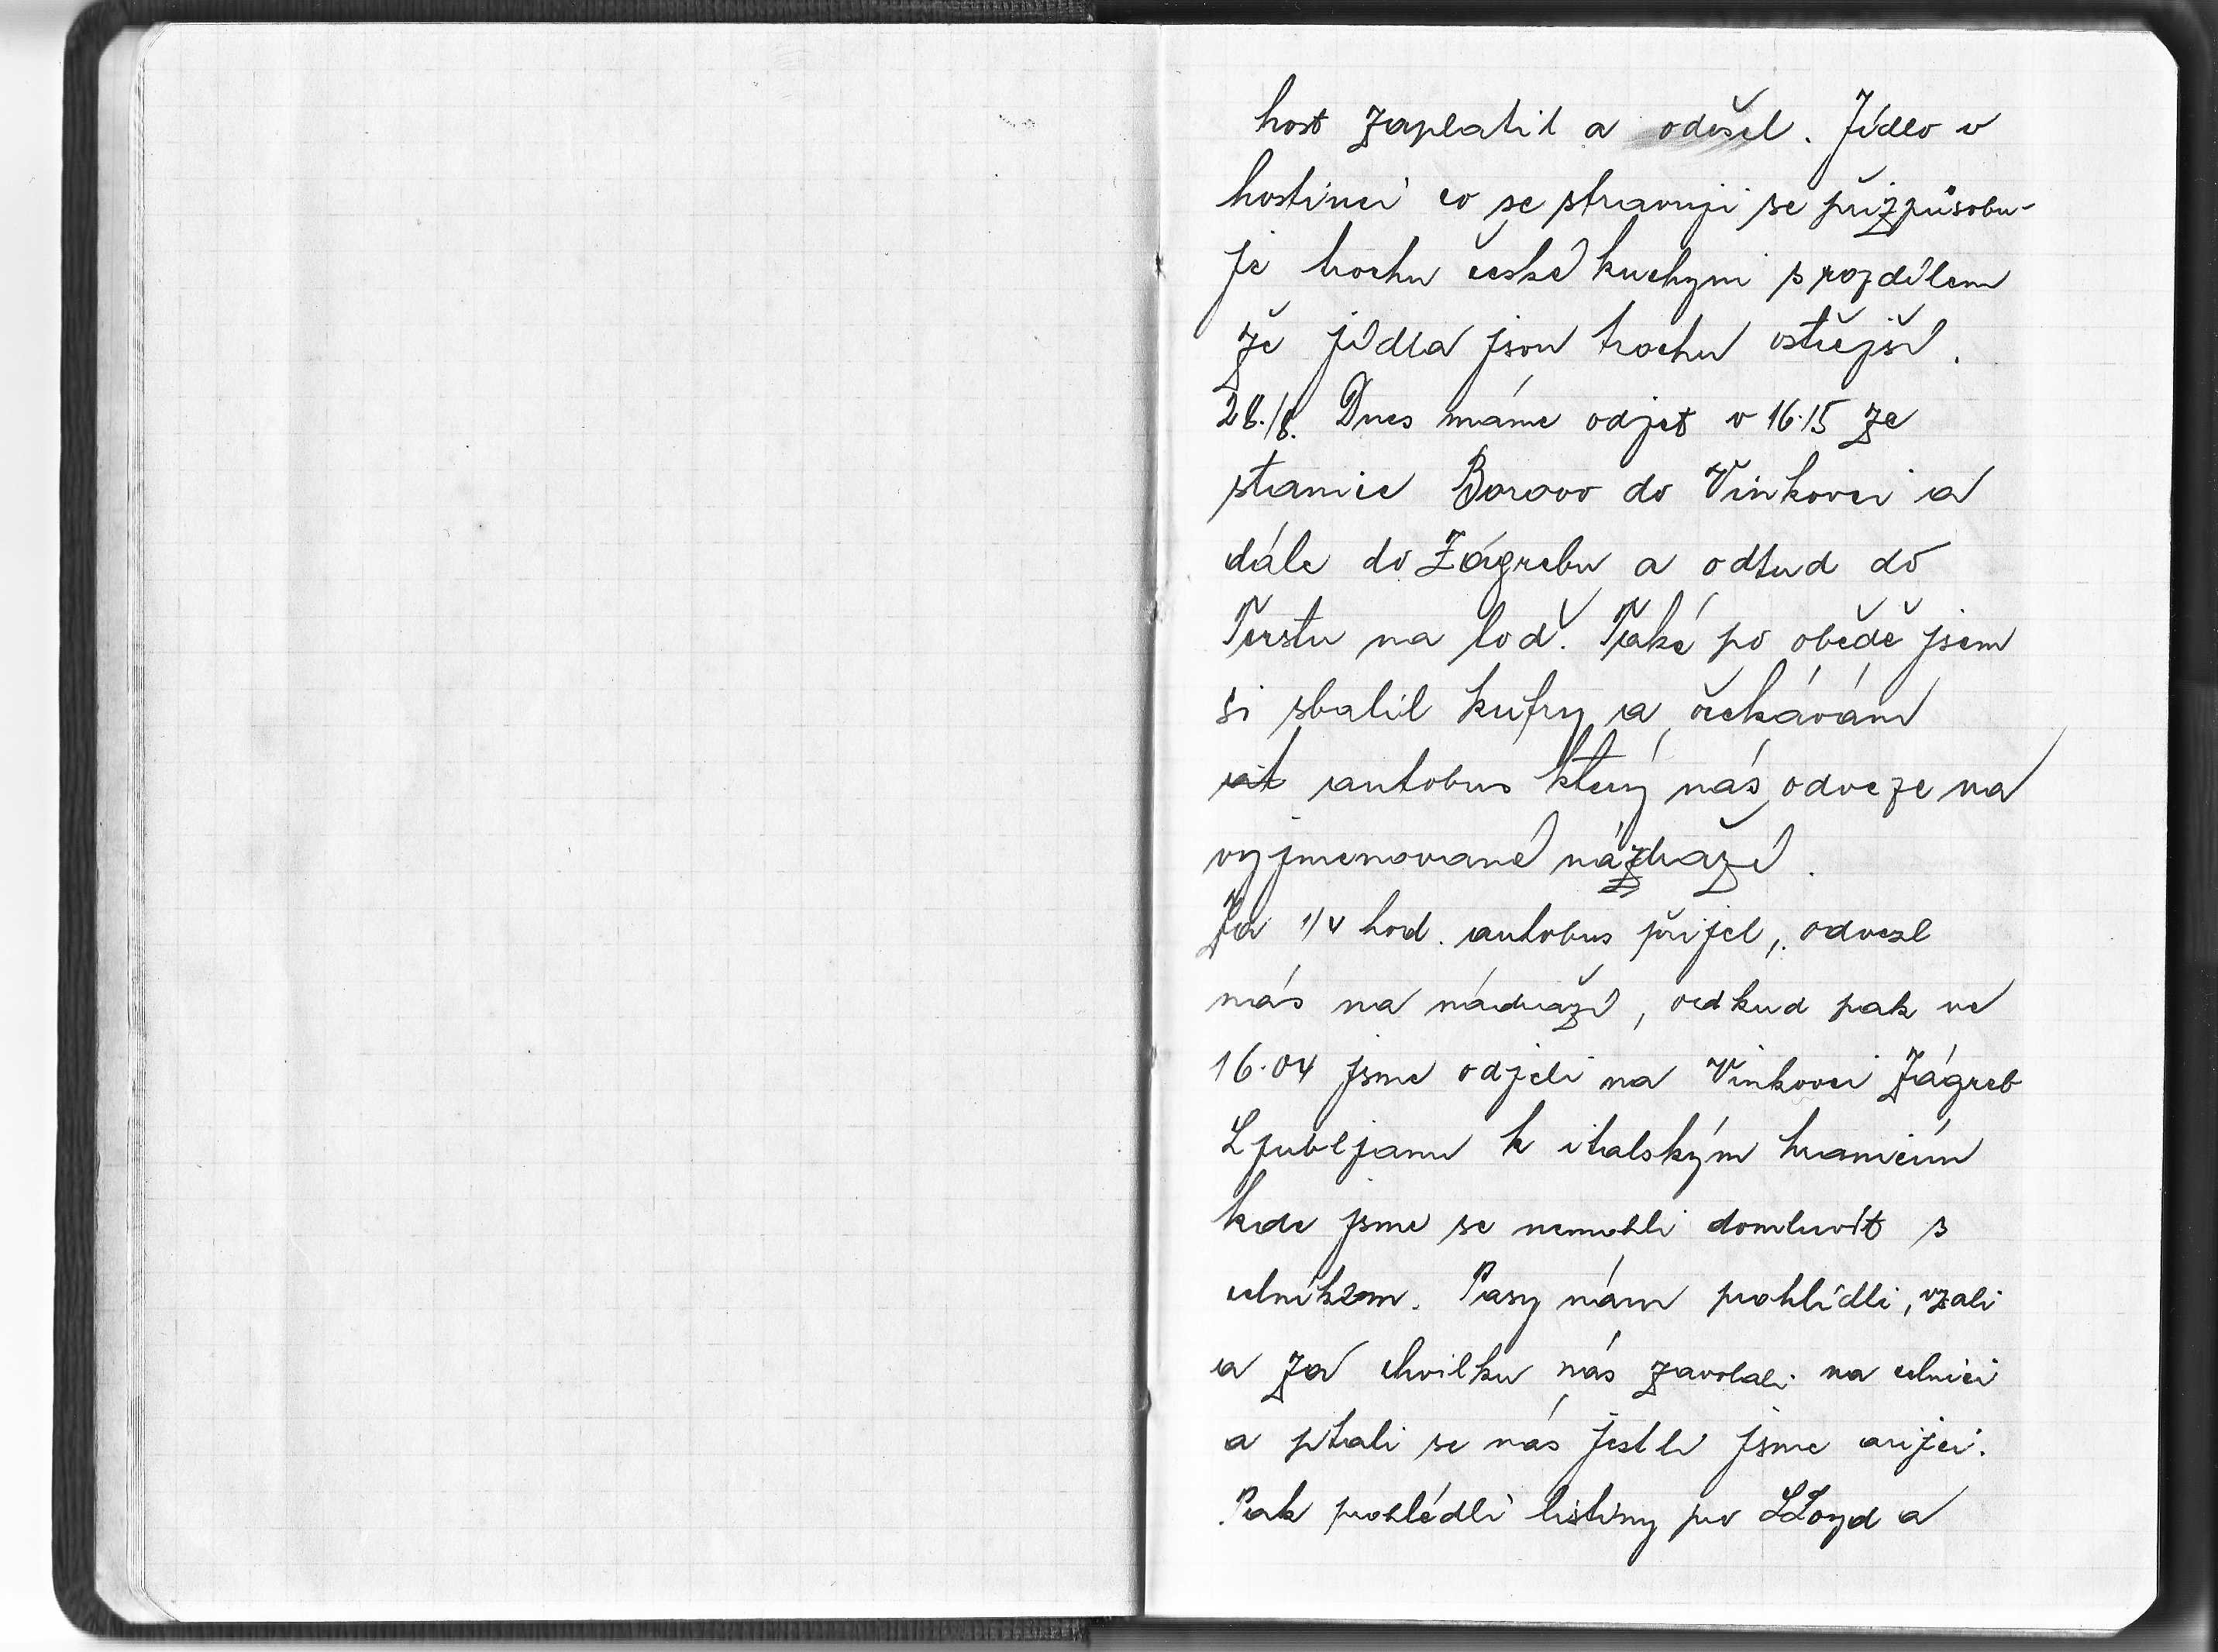 host zaplatil a odešel. Jídlo v
hostinci co se stravuji se přizpůsobu-
je trochu české kuchyni s rozdílem
že jídla jsou trochu ostřejší.
28./8. Dnes máme odjet v 16.15 ze
stanice Borovo do Vinkovci a
dále do Zágrebu a odtud do
Terstu na loď. Také po obědě jsem
si sbalil kufry a očekávám
až autobus který nás odveze na
vyjmenované nádraží.
Za 1/4 hod. autobus přijel, odvezl
nás na nádraží, odkud pak ve
16.04 jsme odjeli na Vinkovci Zágreb
Ljubljanu k italským hranicím
kde jsme se nemohli domluvit s
celníkem. Pasy nám prohlídli, vzali
a za chvilku nás zavolali na celnici
a ptali se nás jestli jsme arijci.
Pak prohlédli listiny pro LLoyd a